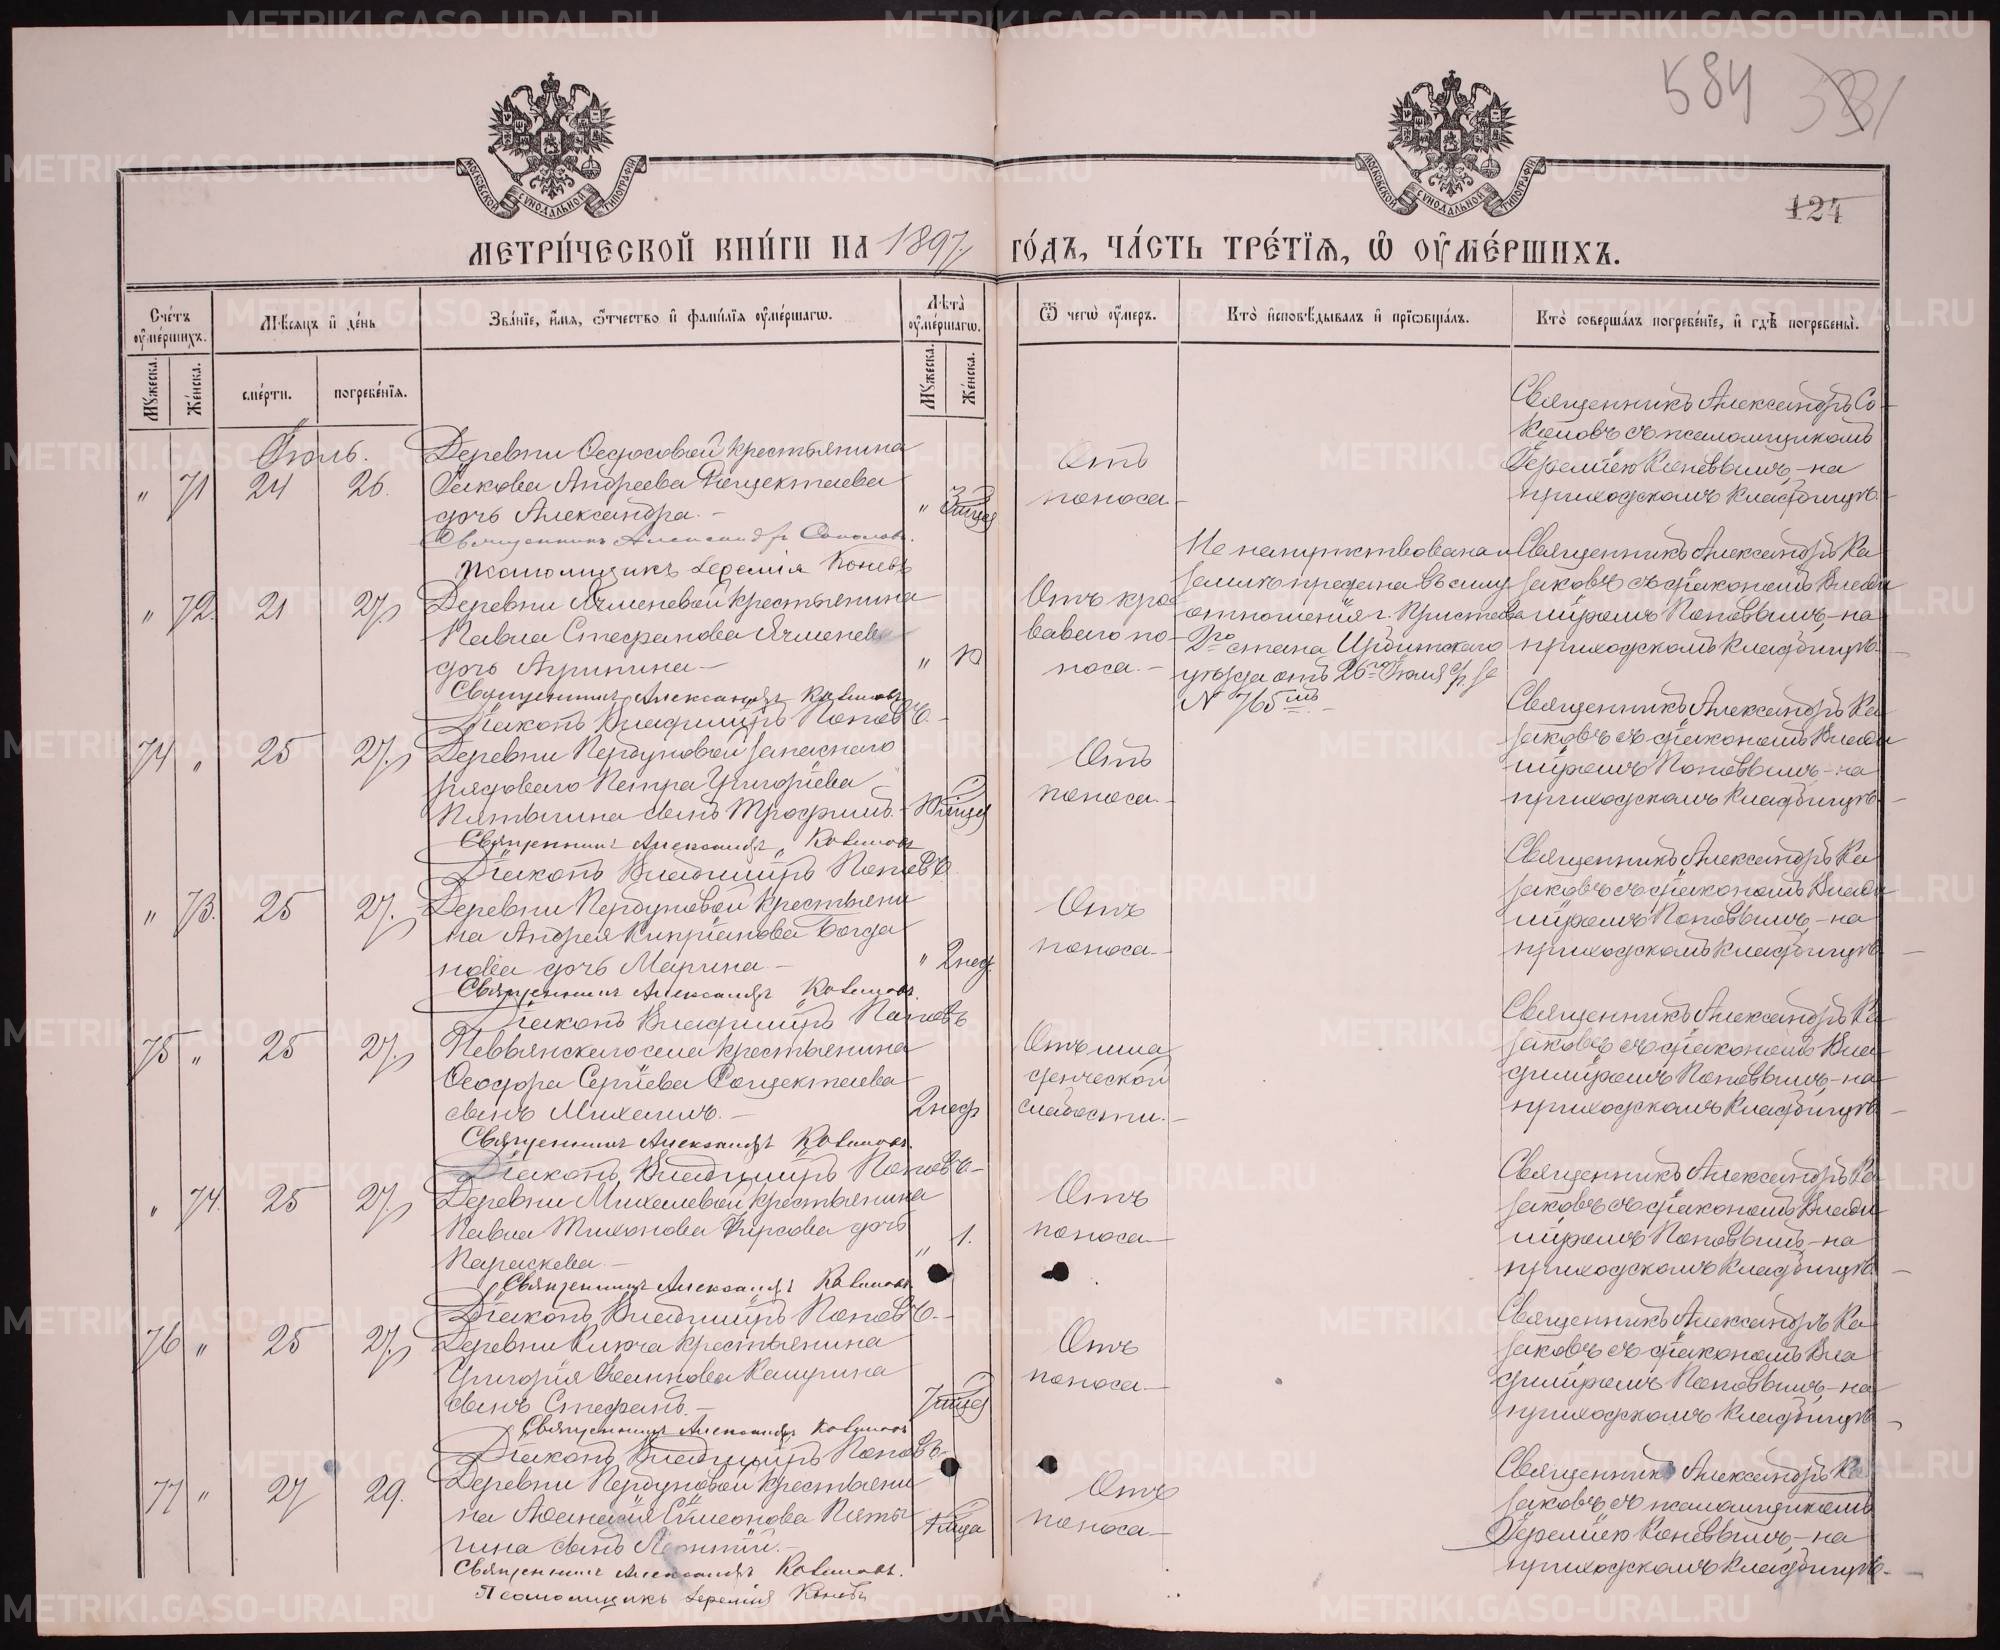 584
124
МОСКОВСКОЙ СУНОДАЛЬНОЙ ТИПОГРАФІИ
МОСКОВСКОЙ СУНОДАЛЬНОЙ ТИПОГРАФІИ
МЕТРИ́ЧЕСКОЙ КНИ́ГИ НА 1897 ГО́ДЪ, ЧА́СТЬ ТРЕ́ТІѦ, Ѽ ОУ҆МЕ́РШИХЪ.
Сче́тъ оу҆ме́ршихъ.
Мꙋ́жеска.
Же́нска.
Мѣ́сяцъ и҆ де́нь
сме́рти.
погребе́нїѧ.
Зва́нїе, и҆́мѧ, ѻ҆́тчество и҆ фами́лїѧ оу҆ме́ршагѡ.
Лѣ́та оу҆ме́ршагѡ.
Мꙋ́жеска.
Же́нска.
Ѿ чегѡ̀ оу҆́меръ.
Кто̀ и҆сповѣ́дывалъ и҆ прїѡбща́лъ.
Кто̀ соверша́лъ погребе́нїе, и҆ гдѣ̀ погребены̀.
Іюль.
" 71 24 26.
Деревни Ѳедосовой крестьянина
Іакова Андреева
дочь Александра.
Священникъ Александръ Соколовъ.
Псаломщикъ Іеремія Коневъ
" 3
Отъ
поноса.
Священникъ Александръ Со-
коловъ съ псаломщикомъ
Іереміею Коневымъ, на
приходскомъ кладбищѣ.
" 72. 21 27.
Деревни Ячменевой крестьянина
Павла Стефанова Ячменева
дочь Агрипина
Священникъ Александръ
Діаконъ Владиміръ Поповъ.
" 10
Отъ кро-
ваваго по-
носа.
Не напутствована и
землѣ предана въ силу
отношенія г. Пристава
2го стана Ирбитскаго
уѣзда отъ 26го Іюля с/г. за
№ 765мъ
Священникъ Александръ Ка-
заковъ съ діакономъ Влади-
міромъ Поповымъ, на
приходскомъ кладбищѣ.
74 " 25 27.
Деревни Пердуновой запаснаго
рядоваго Петра Григоріева
Пятыгина сынъ Трофимъ.
Священникъ Александръ
Діаконъ Владиміръ Поповъ.
Отъ
поноса.
Священникъ Александръ Ка-
заковъ съ діакономъ Влади-
міромъ Поповымъ, на
приходскомъ кладбищѣ.
" 73. 25 27.
Деревни Пердуновой крестьяни-
на Андрея Кипріанова Богда-
нова дочь Марина
Священникъ Александръ
Діаконъ Владиміръ Поповъ
" 2 нед.
Отъ
поноса.
Священникъ Александръ Ка-
заковъ съ діакономъ Влади-
міромъ Поповымъ, на
приходскомъ кладбищѣ.
75 " 25 27.
Невьянскаго села крестьянина
Ѳеодора Сергіева
сынъ Михаилъ.
Священникъ Александръ
Діаконъ Владиміръ Поповъ.
2 нед
Отъ мла-
денческой
слабости.
Священникъ Александръ Ка-
заковъ съ діакономъ Вла-
диміромъ Поповымъ, на
приходскомъ кладбищѣ.
" 74. 25 27.
Деревни Михалевой крестьянина
Павла Тихонова Фирсова дочь
Параскева.
Священникъ Александръ
Діаконъ Владиміръ Поповъ.
" 1.
Отъ
поноса.
Священникъ Александръ Ка-
заковъ съ діакономъ Влади-
міромъ Поповымъ, на
приходскомъ кладбищѣ.
76 " 25 27.
Деревни Ключа крестьянина
Григорія Іоаннова
сынъ Стефанъ.
Священникъ Александръ
Діаконъ Владиміръ Поповъ.
7
Отъ
поноса.
Священникъ Александръ Ка-
заковъ съ діакономъ Вла-
диміромъ Поповымъ, на
приходскомъ кладбищѣ.
77 " 27 29.
Деревни Пердуновой крестьяни-
на Аѳанасія Сѵмеонова Пяты-
гина сынъ Леонтій.
Священникъ Александръ
Псаломщикъ Іеремія Коневъ
Отъ
поноса.
Священникъ Александръ Ка-
заковъ съ псаломщикомъ
Іереміею Коневымъ, на
приходскомъ кладбищѣ.
METRIKI.GASO-URAL.RU